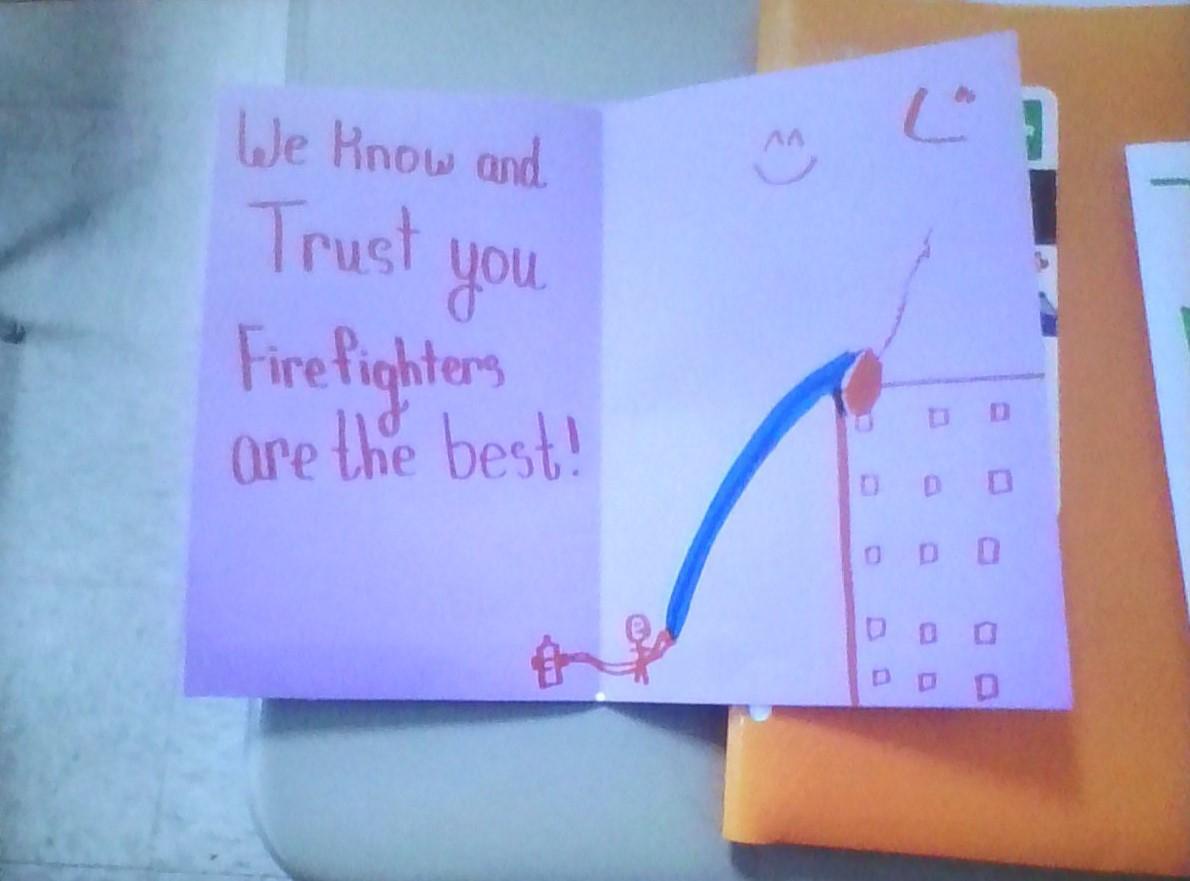 We Know and
Trust you
Firefighters
are the best!